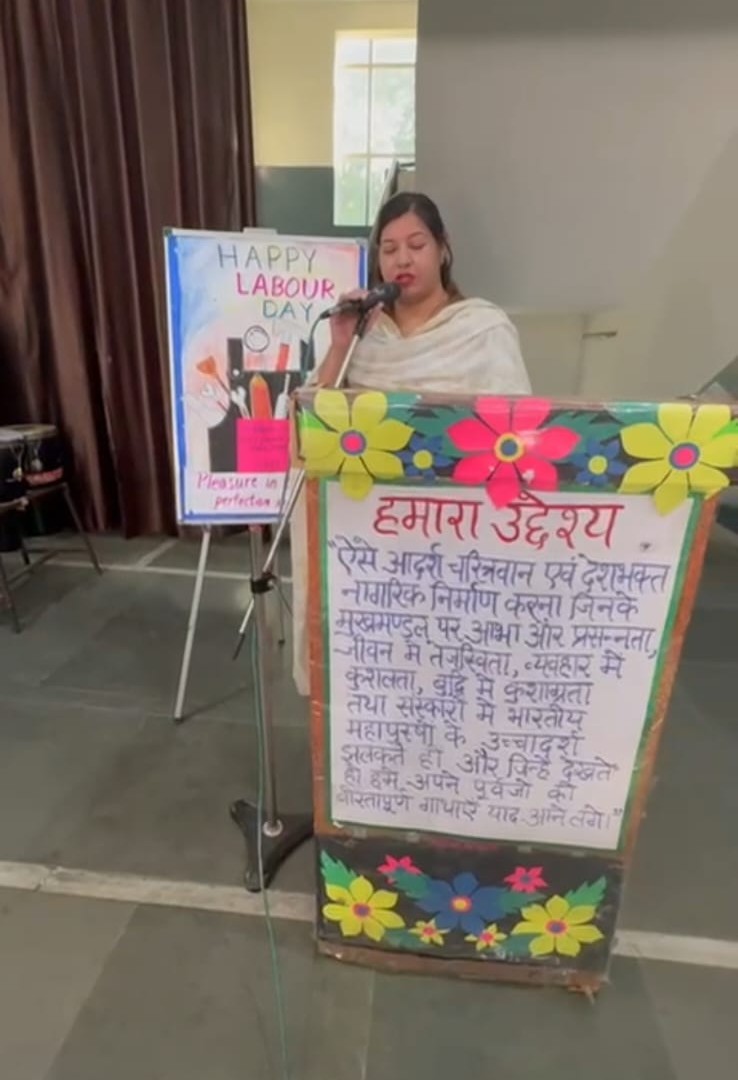 HAPPY
LABOUR
DAY
Pleasure in
perfection
हमारा उद्देश्य
"ऐसे आदर्श चरित्रवान एवं देशभक्त
नागरिक निर्माण करना जिनके
मुखमण्डल पर आभा और प्रसन्नता,
जीवन में तेजस्विता, व्यवहार में
कुशलता, बुद्धि में कुशाग्रता
तथा संस्कारों में भारतीय
महापुरुषों के उच्चादर्श
झलकते हों और जिन्हें देखते
ही हमें अपने पूर्वजों की
गाथाएं याद आने लगे।"